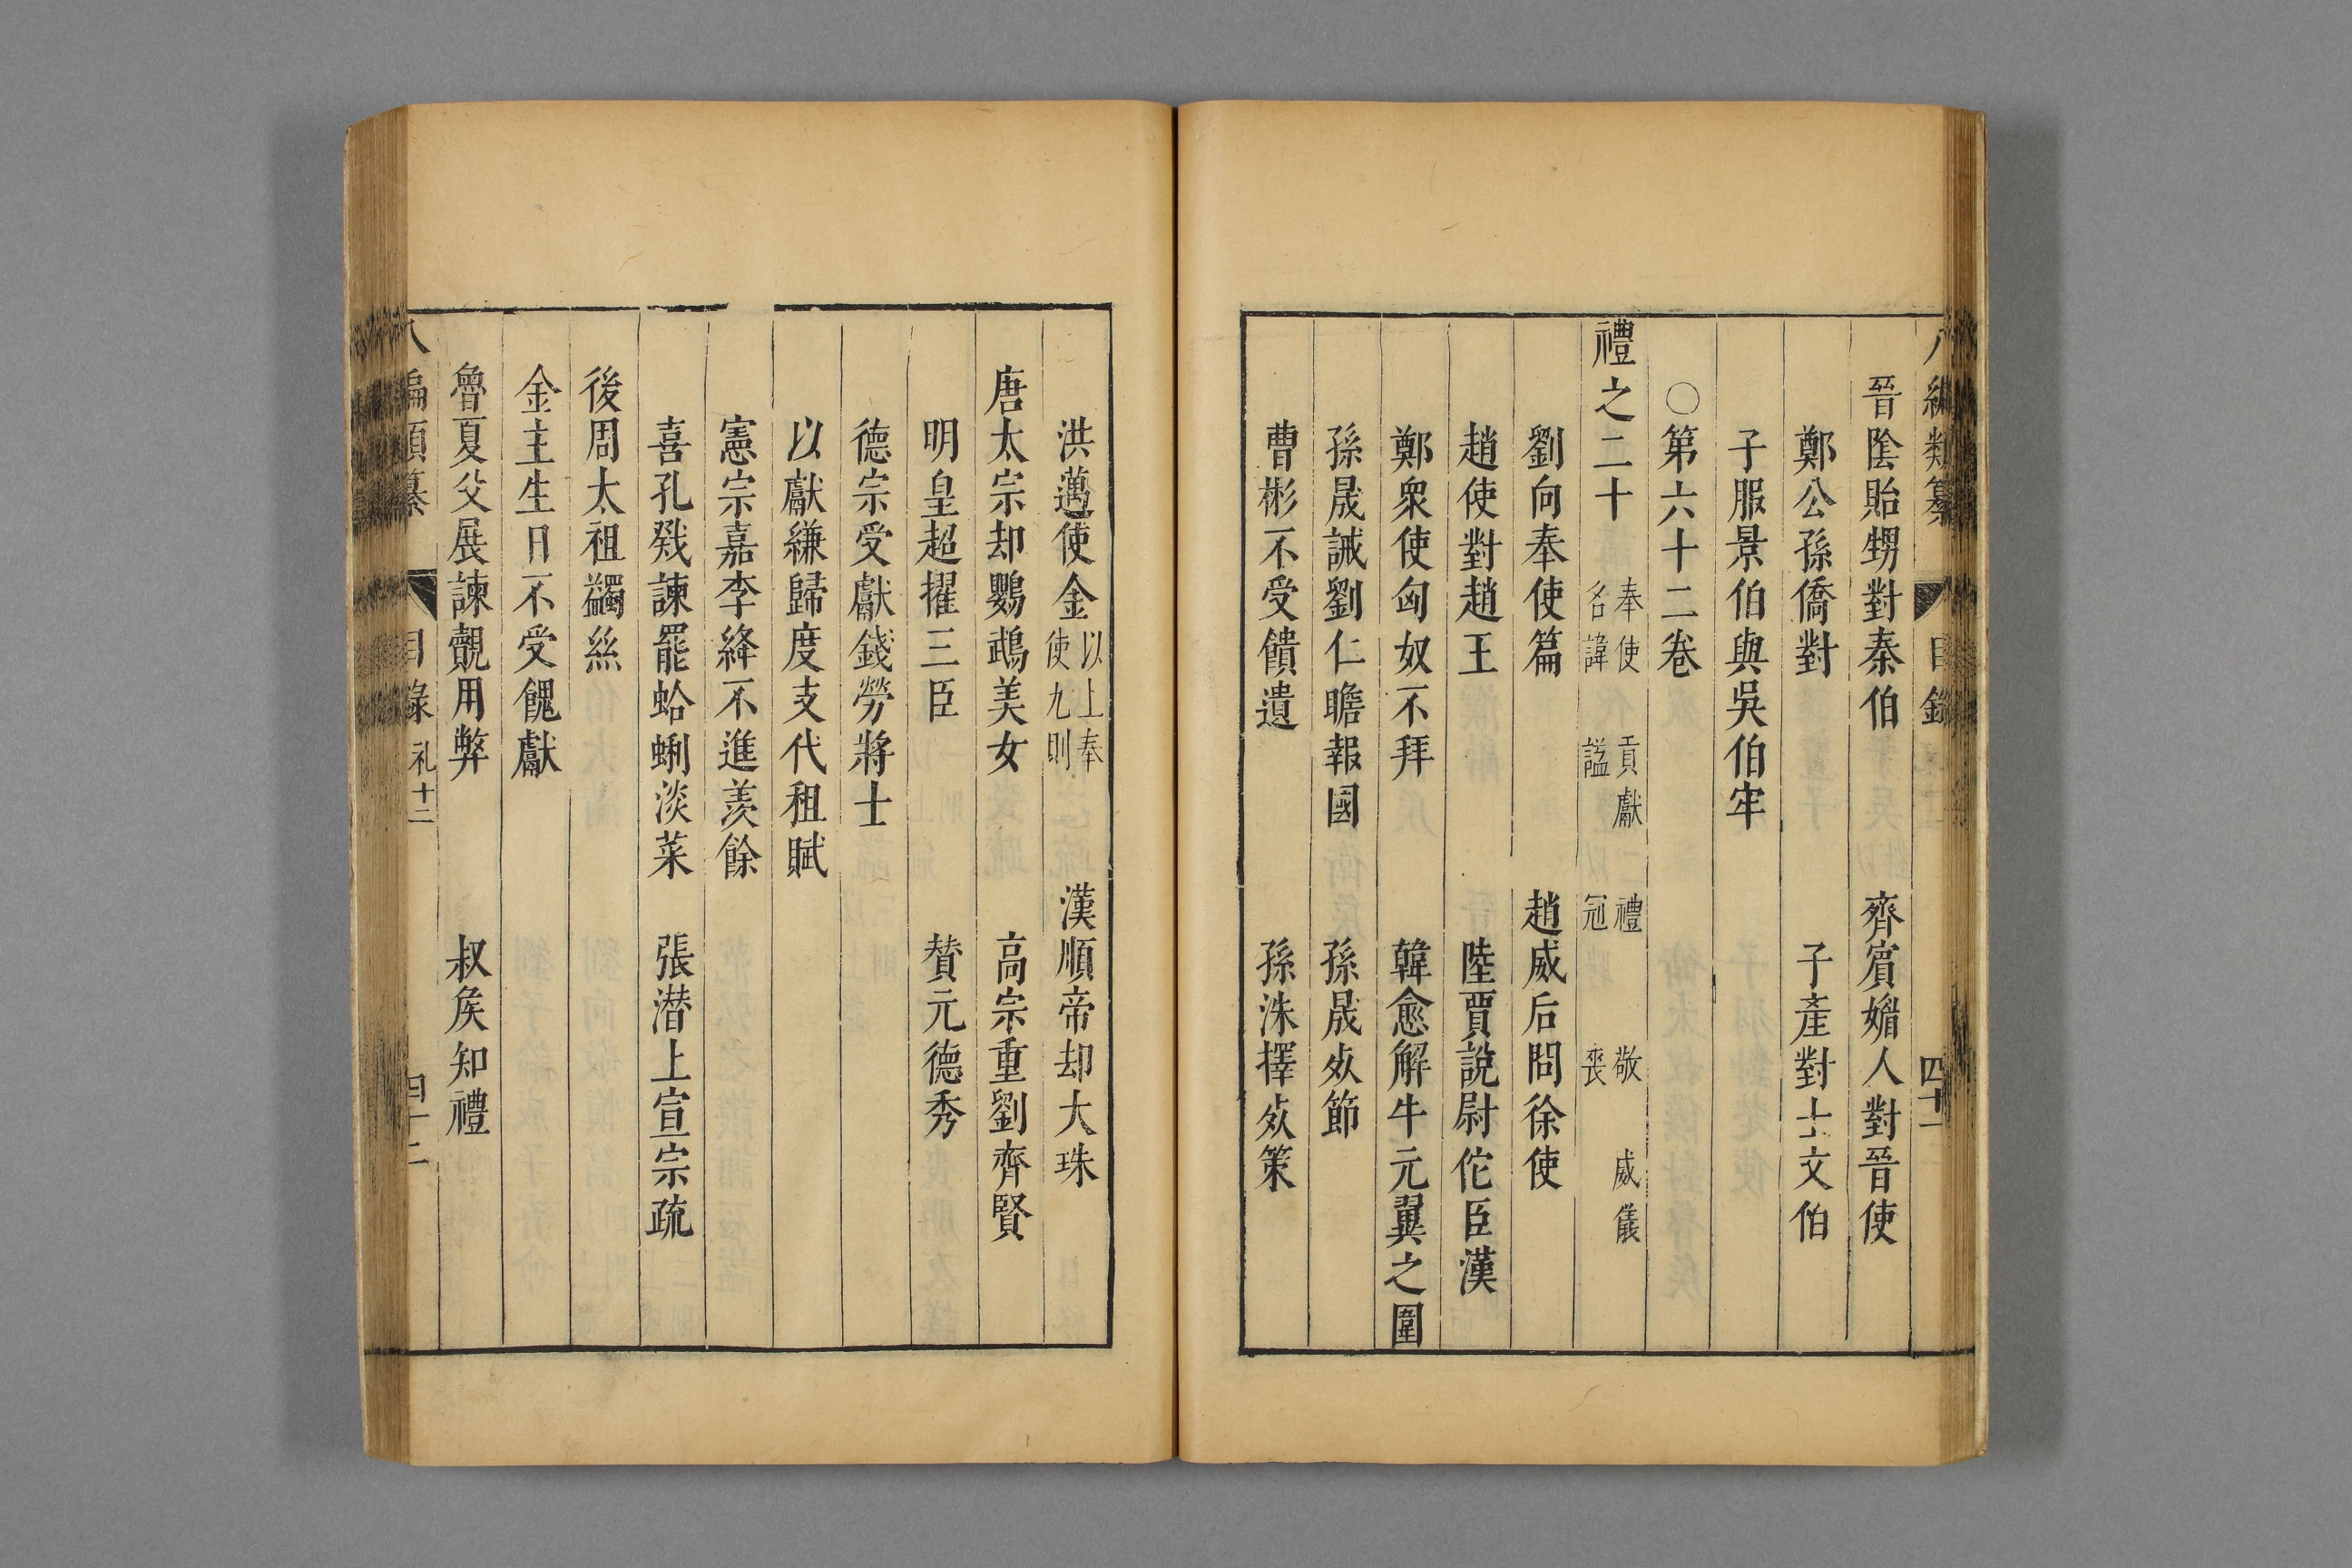 八編類纂 目錄 四十一
晉陰貽甥對秦伯 齊賓媚人對晉使
鄭公孫僑對 子產對士文伯
子服景伯與吳伯牢
○第六十二卷
禮之二十 奉使 貢獻 禮 敬 威儀 名諱 謚 冠 喪
劉向奉使篇 趙威后問徐使
趙使對趙王 陸賈說尉佗臣漢
鄭衆使匈奴不拜 韓愈解牛元翼之圍
孫晟誡劉仁贍報國 孫晟死節
曹彬不受饋遺 孫洙擇死策
洪邁使金 以上奉使九則 漢順帝却大珠
唐太宗却鸚鵡美女 高宗重劉齊賢
明皇超擢三臣 贊元德秀
德宗受獻錢勞將士
以獻縑歸度支代租賦
憲宗嘉李絳不進羨餘
喜孔戣諫罷蛤蜊淡菜 張潛上宣宗疏
後周太祖蠲絲
金主生日不受餽獻
魯夏父展諫覿用弊 叔矦知禮
八編類纂 目錄 礼十二 四十二